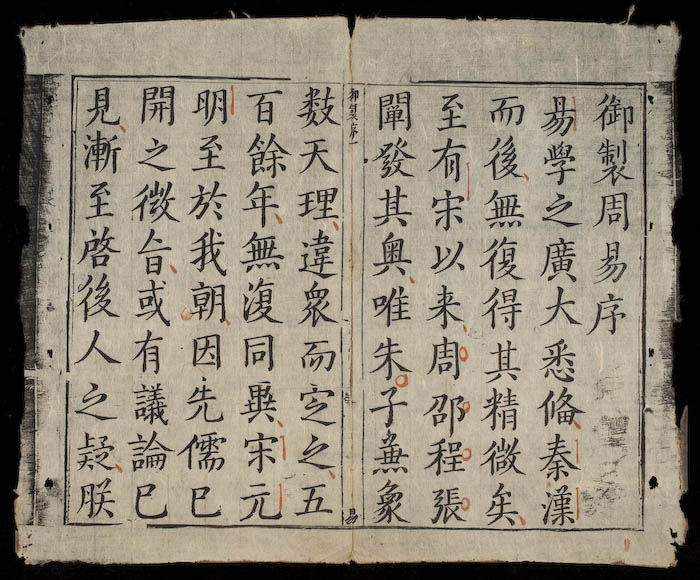 御製周易序
易學之廣大悉俻秦漢
而後無復得其精微矣
至有宋以来周邵程張
闡發其奧唯朱子兼象
御製序一
易
数天理違衆而定之五
百餘年無復同異宋元
明至於我朝因先儒已
開之微旨或有議論已
見漸至啓後人之疑朕